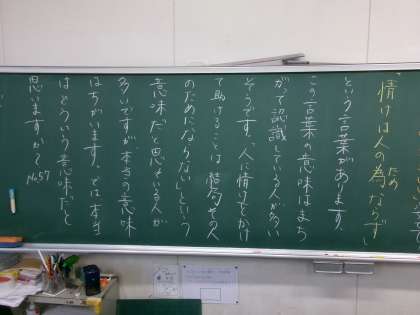 「情けは人の為ならず」
ため
という言葉があります。
この言葉の意味はまち
がって認識している人が多い
そうです。「人に情けをかけ
て助けることは、結局その人
のためにならない」という
意味だと思っている人が
多いですが、本当の意味
はちがいます。では、本当
はどういう意味だと
思いますか？ No.57